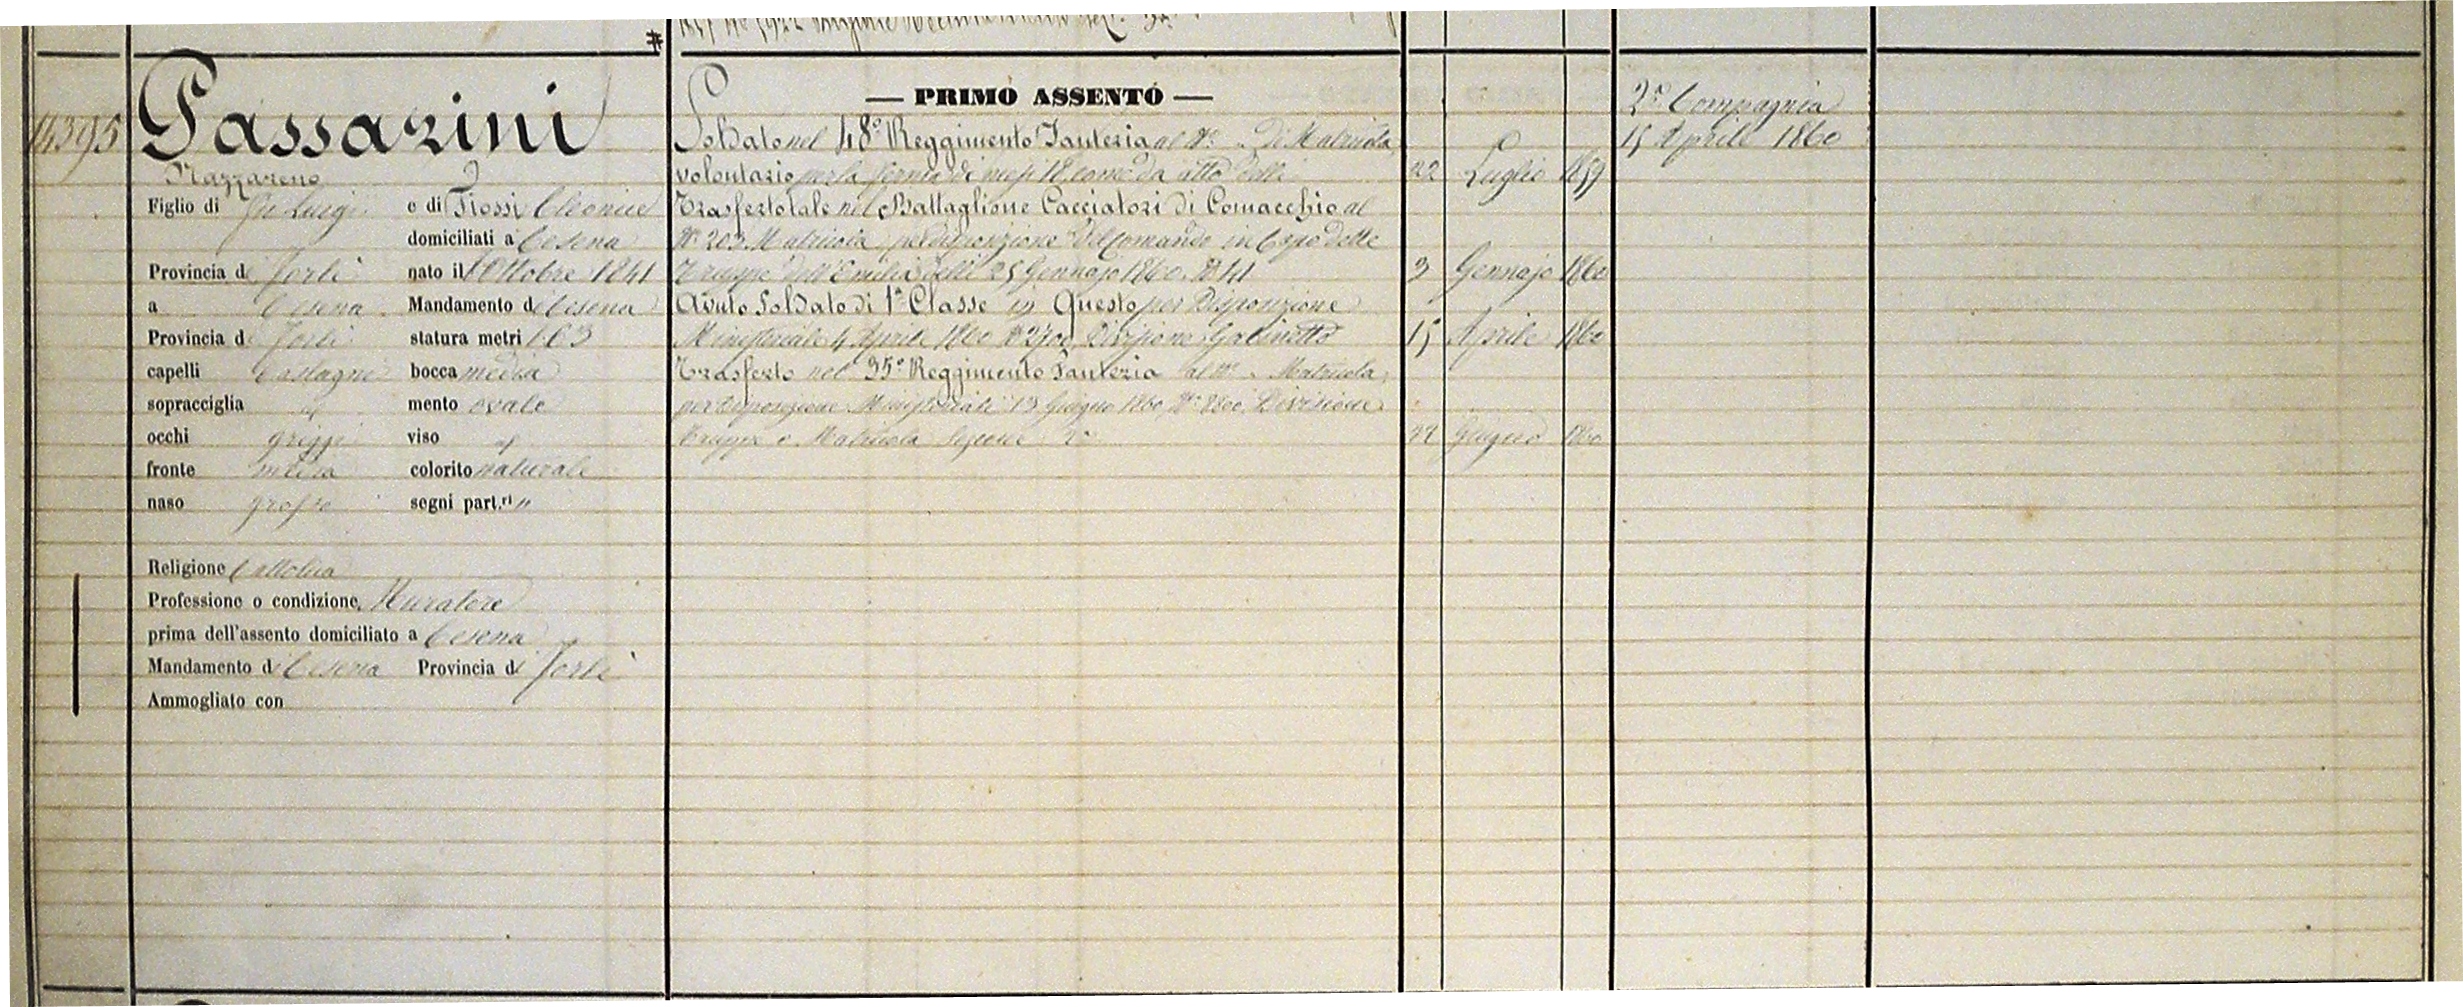 14395
Passarini
Nazzareno
Figlio di fu Luigi e di Fiossi Cleonice
domiciliati a Cesena
Provincia di Forlì nato il 1 Ottobre 1841
a Cesena Mandamento di Cesena
Provincia di Forlì statura metri 1.63
capelli castagni bocca media
sopracciglia id mento ovale
occhi griggi viso id
fronte media colorito naturale
naso grosso segni part.ri "
Religione Cattolica
Professione o condizione Muratore
prima dell'assento domiciliato a Cesena
Mandamento di Cesena Provincia di Forlì
Ammogliato con
— PRIMO ASSENTO —
Soldato nel 48° Reggimento Fanteria al N° " Di Matricola
volontario per la ferma di mesi 18, come da atto delli 22 Luglio 1859
Trasferto tale nel Battaglione Cacciatori di Comacchio al
N° 203 Matricola, per disposizione del Comando in Capo delle
Truppe dell'Emilia delli 25 Gennajo 1860. N 41 3 Gennajo 1860
Avuto Soldato di 1a Classe in Questo per Disposizione
Ministeriale 4 Aprile 1860 N 2700, Divisione Gabinetto 15 Aprile 1860
Trasferto nel 35° Reggimento Fanteria al N° " Matricola,
per disposizione Ministeriale 13 Giugno 1860, N° 8800, Divisione
Truppe e Matricola Sezione 2a 22 Giugno 1860
2a Compagnia
15 Aprile 1860